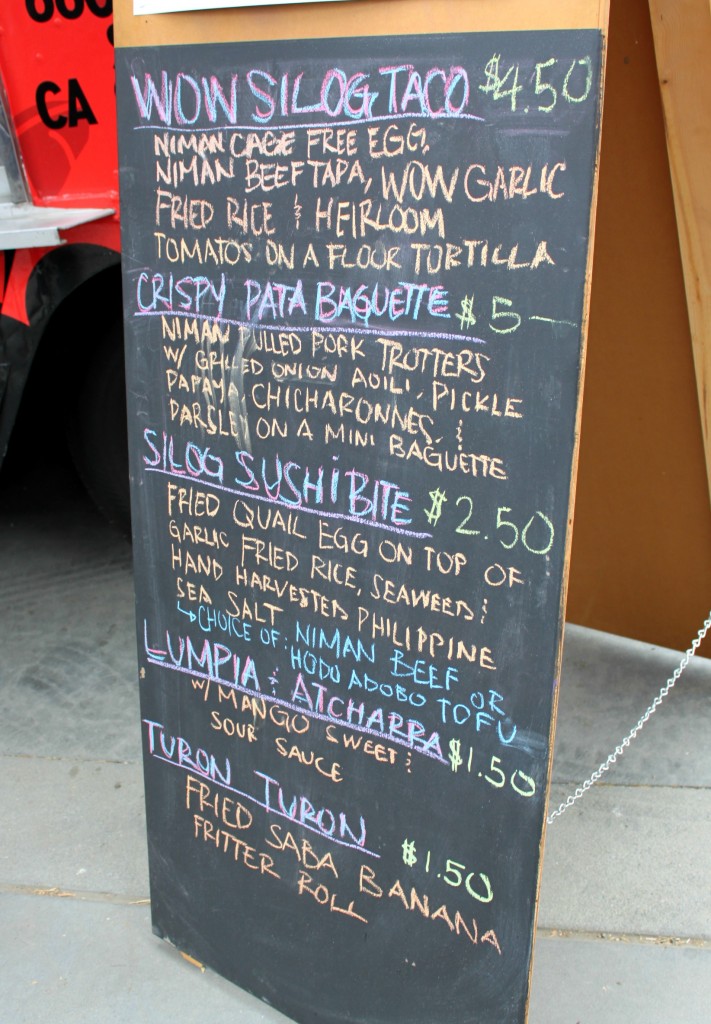 CA
WOW SILOG TACO $4.50
NIMAN CAGE FREE EGG,
NIMAN BEEF TAPA, WOW GARLIC
FRIED RICE & HEIRLOOM
TOMATOS ON A FLOUR TORTILLA
CRISPY PATA BAGUETTE $5—
NIMAN PULLED PORK TROTTERS
W/ GRILLED ONION AOILI, PICKLE
PAPAYA, CHICHARONNES, &
PARSLEY ON A MINI BAGUETTE
SILOG SUSHI BITE $2.50
FRIED QUAIL EGG ON TOP OF
GARLIC FRIED RICE, SEAWEED &
HAND HARVESTED PHILIPPINE
SEA SALT
↳ CHOICE OF: NIMAN BEEF OR
HODU ADOBO TOFU
LUMPIA & ATCHARRA $1.50
W/ MANGO SWEET &
SOUR SAUCE
TURON TURON $1.50
FRIED SABA BANANA
FRITTER ROLL